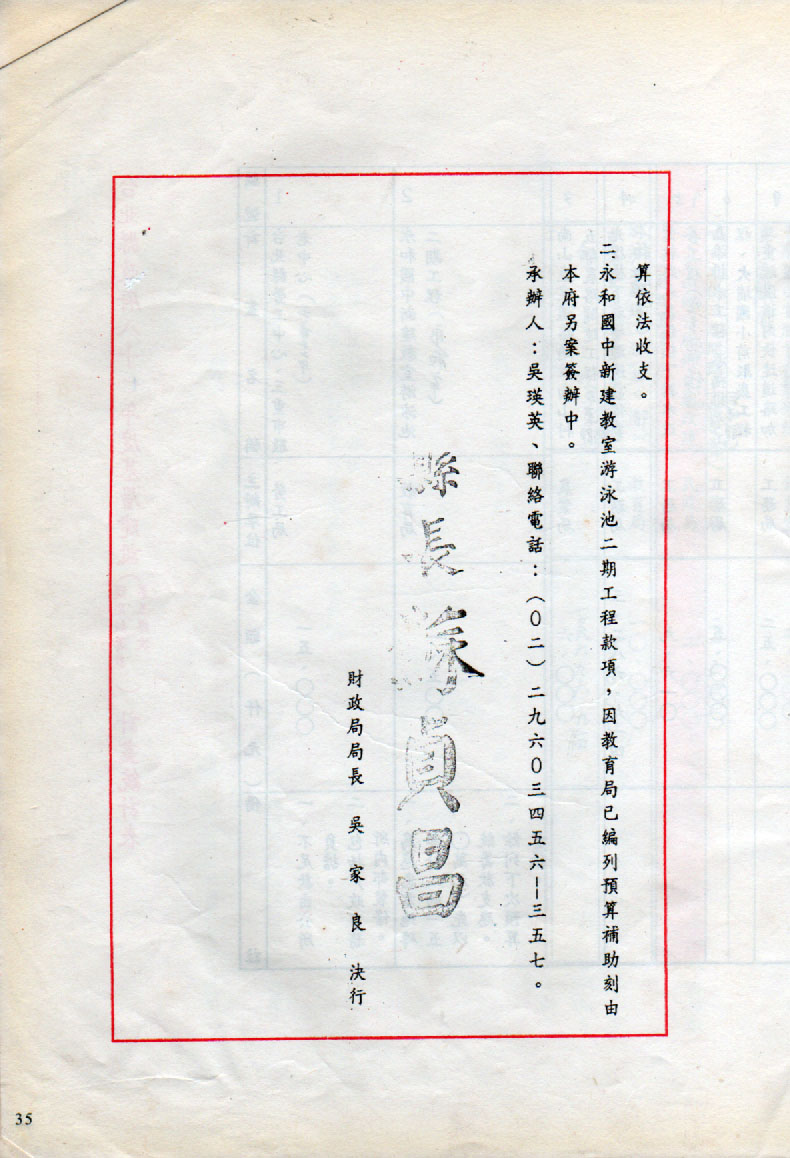 算依法收支。
二、永和國中新建教室游泳池二期工程款項，因教育局已編列預算補助刻由
本府另案簽辦中。
承辦人：吳瑛英、聯絡電話：（０二）二九六０三四五六－三五七。
縣長蘇貞昌
財政局局長 吳家良 決行
35